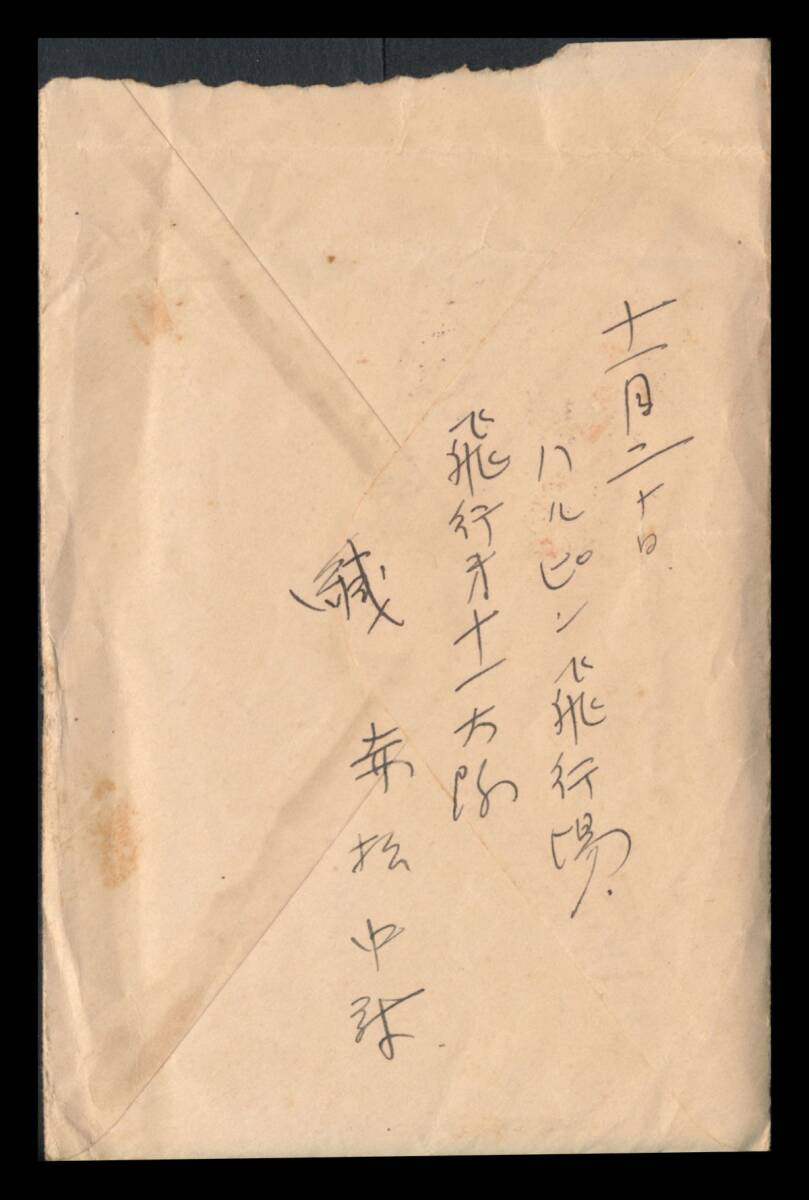 十一月二十日
ハルピン飛行場.
飛行才十一大隊
緘
赤松中尉.